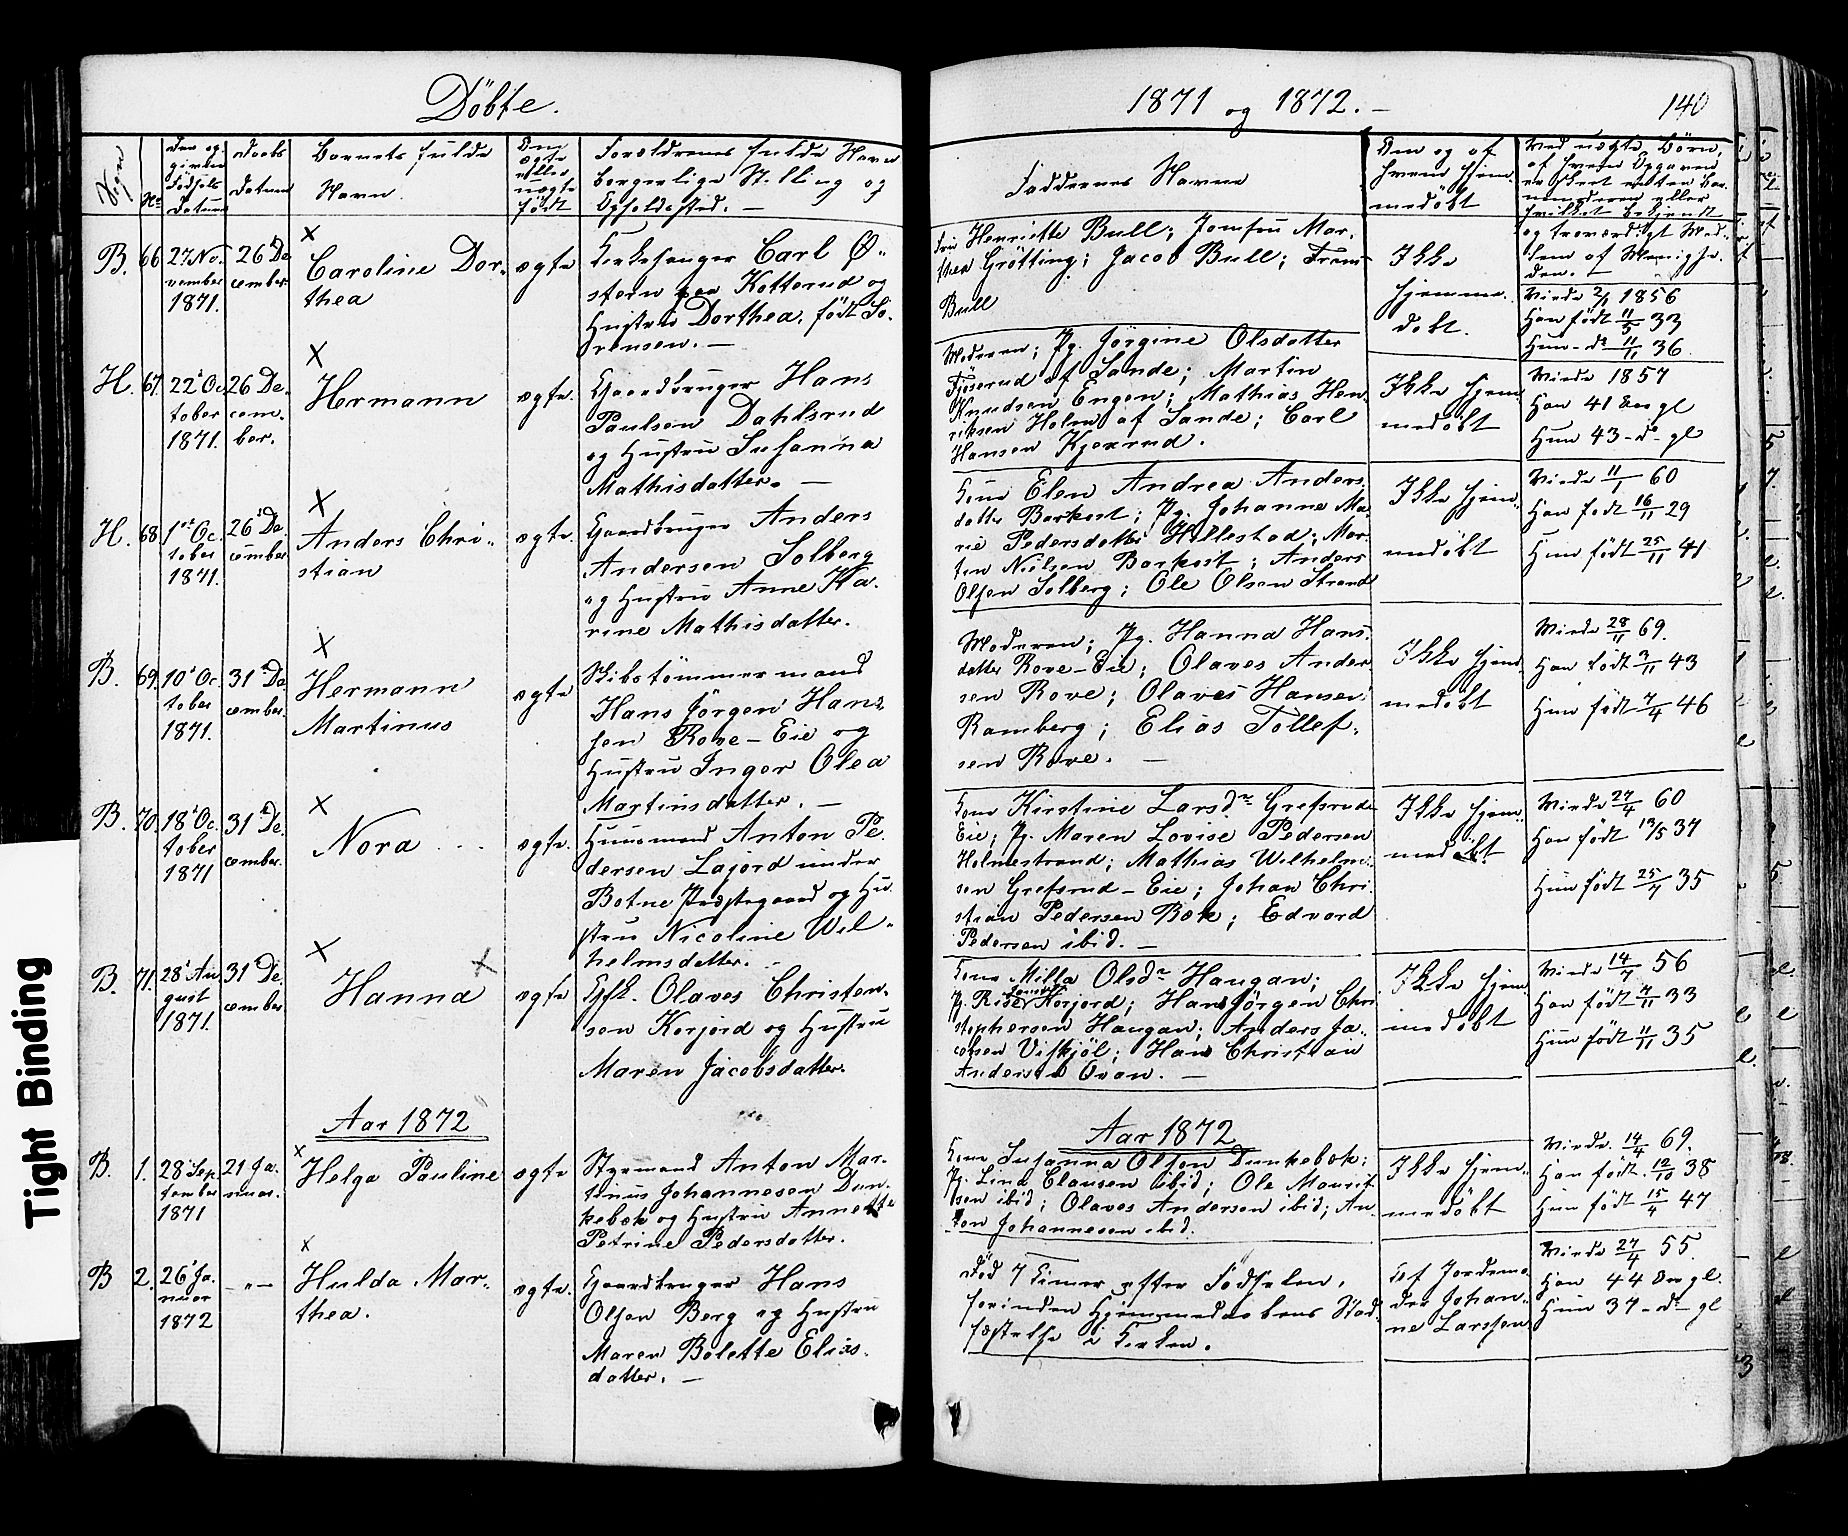 Döbte.
1871 og 1872.
140
Sogn
No
Den og
given
Födsels
Datum
Daabs
Datum
Barnets fulde
Navn.
Om
ægte
eller
uægte
födt
Forældrenes fulde Navn
borgerlige Stilling og
Opholdssted. —
Faddernes Navne
Om og af
hvem hjem-
medöbt
Ved uægte Börn,
og troværdigt Med-
lem af Menighe-
den.
B. 66
27 No-
vember
1871.
26 De
cember
Caroline Dor-
thea
ægte
Kirkesanger Carl Ø-
stern paa Kotterud og
Hustru Dorthea, födt So-
rensen. —
Fru Henriette Bull; Jomfru Mar-
then Grötting; Jacob Bull; Frants
Bull
Ikke
hjemme-
döbt.
Viede 2/1 1856
Han födt 11/5 33
Hun - do 11/11 36
H. 67.
22 Oc
tober
1871.
26 De-
cem-
ber.
Hermann
ægte.
Gaardbruger Hans
Paulsen Dahlsrud
og Hustru Susanna
Mathisdatter. —
Moderen; Pg. Jörgine Olsdatter
Tuserud af Sande; Martin
Knudsen Engen; Mathias Hen-
riksen Holm af Sande; Carl
Hansen Kjexrud.
Ikke hjem-
medöbt
Viede 1857
Han 41 Aar gl
Hun 43 - do - gl
H. 68.
1ste Oc.
tober
1871.
26 De.
cember
Anders Chri-
stian
ægte.
Gaardbruger Anders
Andersen Solberg
og Hustru Anne Ka-
rine Mathisdatter.
Kone Elen Andrea Anders-
datter Barkost; Pg. Johanne Ma-
rie Pedersdatter Hillestad; Mar-
tin Nielsen Barkost; Anders
Olsen Solberg; Ole Olsen Strand
Ikke hjem-
medöbt
Viede 11/1 60
Han födt 16/11 29
Hun födt 25/11 41
B. 69.
10 Oc.
tober
1871.
31 De
cember.
Hermann
Martinus
ægte
Skibstömmermand
Hans Jörgen Han-
sen Rove-Eie og
Hustru Inger Olea
Martinsdatter. —
Moderen; Pg. Hanna Hans-
datter Rove-Eie; Olaves Ander
sen Rove; Olaves Hansen
Ramberg; Elias Tollef-
sen Rove. —
Ikke hjem
medöbt
Viede 28/11 69.
Han födt 3/11 43
Hun födt 7/4 46
B. 70.
18 Oc.
tober
1871
31 De.
cember.
Nora
ægte.
Huusmand Anton Pe
dersen Lajord under
Botne Præstegaard og Hu-
stru Nicoline Wil-
helmsdatter.
Kone Kirstine Larsdr Grefsrud
Eie; Pg. Maren Lovise Pedersen
Holmestrand; Mathias Wilhelm-
sen Grefsrud-Eie; Johan Chri-
stian Pedersen Bök; Edvard
Pedersen ibid. —
Ikke hjem-
medöbt
Viede 27/4 60
Han födt 13/5 37
Hun födt 25/7 35
B. 71.
28 Au
gust
1871.
31 De.
cember
Hanna
ægte
Gfk. Olaves Christen-
sen Korjord og Hustru
Maren Jacobsdatter.
Kone Milla Olsdr Haugan;
Korjord; Hans Jörgen Chri
stophersen Haugan; Anders Ja-
cobsen Vifkjöl; Hans Christian
Andersen Ovan. —
Ikke hjem-
medöbt
Viede 14/7 56
Han födt 4/11 33
Hun födt 11/11 35
Aar 1872
Aar 1872
B. 1.
28 Sep
tember
1871
21 Ja-
nuar.
Helga Pauline
ægte
Styrmand Anton Mar-
tinus Johannesen Dun-
kebæk og Hustru Annette
Petrine Pedersdatter.
Kone Susanna Olsen Dunkebæk;
Pg. Lina Clausen ibid; Ole Maurit
sen ibid; Olaves Andersen ibid; An-
ton Johannesen ibid.
Ikke hjem-
medöbt
Viede. 14/4 69.
Han födt. 12/10 38
Hun födt 15/4 47
B 2.
26 Ja.
nuar
1872
— " —
Hulda Mar-
thea.
ægte.
Gaardbruger Hans
Olsen Berg og Hustru
Maren Bolette Elias-
datter. —
Död 7 Timer efter Födselen,
forinden Hjemmedaabens Stad-
fæstelse i Kirken.
Af Jordemo
der Johan-
ne Larssen
Viede 27/4 55.
Han 44 Aar gl.
Hun 37 - do - gl
Tight Binding